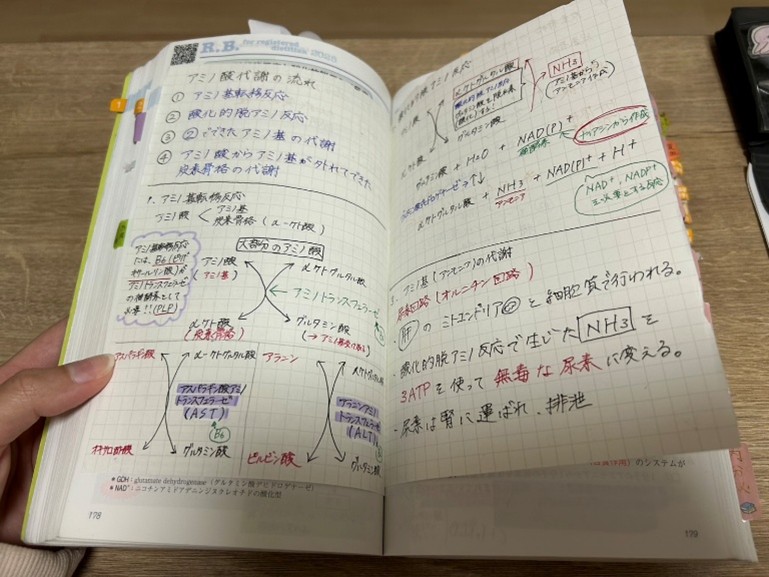 R.B. for registered dietitian 2025
アミノ酸代謝の流れ
① アミノ基転移反応
② 酸化的脱アミノ反応
③ ②でできたアミノ基の代謝
④ アミノ酸からアミノ基が外れてできた
炭素骨格の代謝
1. アミノ基転移反応
アミノ酸 < アミノ基
炭素骨格 (α-ケト酸)
大部分のアミノ酸
アミノ基転移反応
には、B6(ピリド
キサールリン酸)が
アミノトランスフェラーゼ
の補酵素として
必要!!(PLP)
アミノ酸
(アミノ基)
α-ケトグルタル酸
アミノトランスフェラーゼ
α-ケト酸
(炭素骨格)
グルタミン酸
アスパラギン酸
α-ケトグルタル酸
アスパラギン酸アミノ
トランスフェラーゼ
(AST)
B6
オキサロ酢酸
グルタミン酸
アラニン
α-ケトグルタル酸
アラニンアミノ
トランスフェラーゼ
(ALT)
ピルビン酸
グルタミン酸
* GDH:glutamate dehydrogenase(グルタミン酸デヒドロゲナーゼ)
* NAD⁺:ニコチンアミドアデニンジヌクレオチドの酸化型
178
α-ケトグルタル酸
グルタミン酸
NH3
グルタミン酸 + H2O + NAD(P)+
補酵素
ナイアシンから作成
α-ケトグルタル酸 + NH3 + NAD(P)H + H+
アンモニア
NAD+、NADP+
3. アミノ基(アンモニア)の代謝
尿素回路(オルニチン回路)
肝のミトコンドリアと細胞質で行われる。
・酸化的脱アミノ反応で生じたNH3を
3ATPを使って無毒な尿素に変える。
・尿素は腎に運ばれ、排泄
のシステムが
179